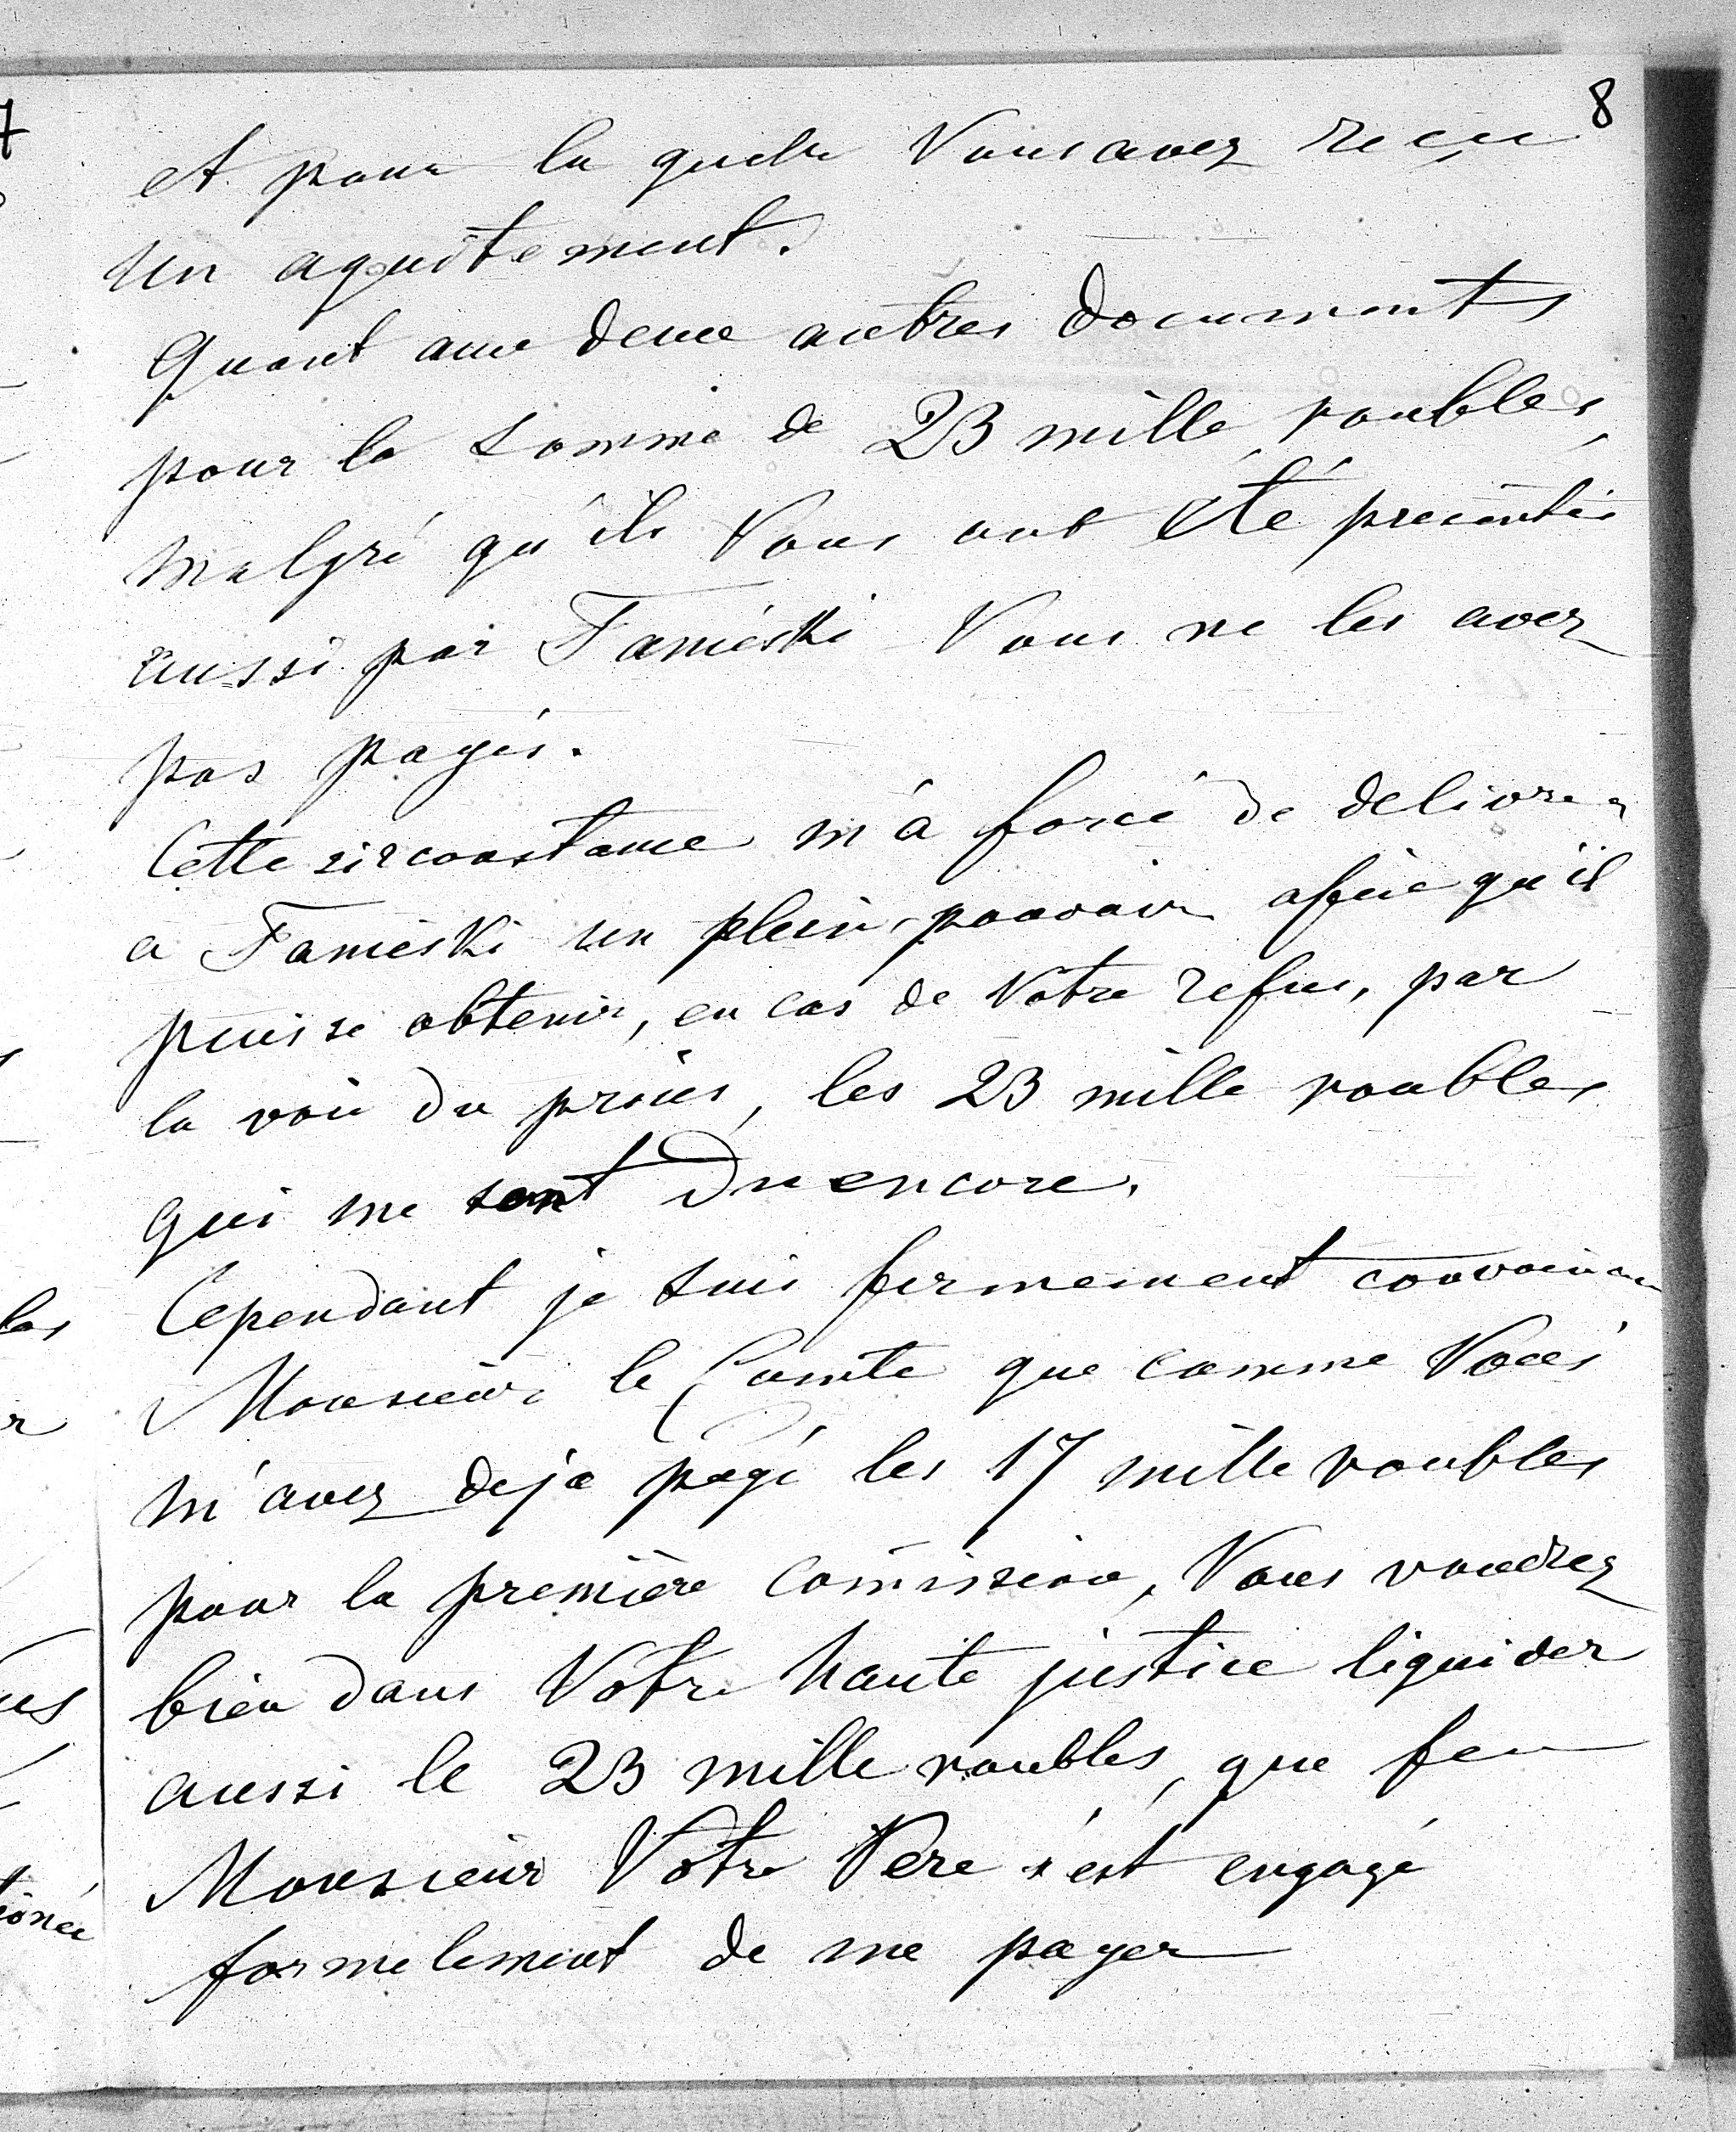 8
et pour la quelle Vous avez reçu
un aquitement.
Quant aux deux autres documents
pour la somme de 23 mille roubles,
malgré qu'ils Vous ont été presentés
aussi par Tanieski Vous ne les avez
pas payés.
Cette circonstance m'a forcé de delivrer
a Tanieski un plein pouvoir afin qu'il
puisse obtenir, en cas de Votre refus, par
la voie du procès, les 23 mille roubles
qui me sont du encore.
Cependant je suis fermement convaincu
Monsieur le Comte que comme Vous
m'avez deja payé les 17 mille roubles
pour la première comission, Vous voudrez
bien dans Votre haute justice liquider
aussi le 23 mille roubles, que feu
Monsieur Votre Père s'est engagé
formelement de me payer